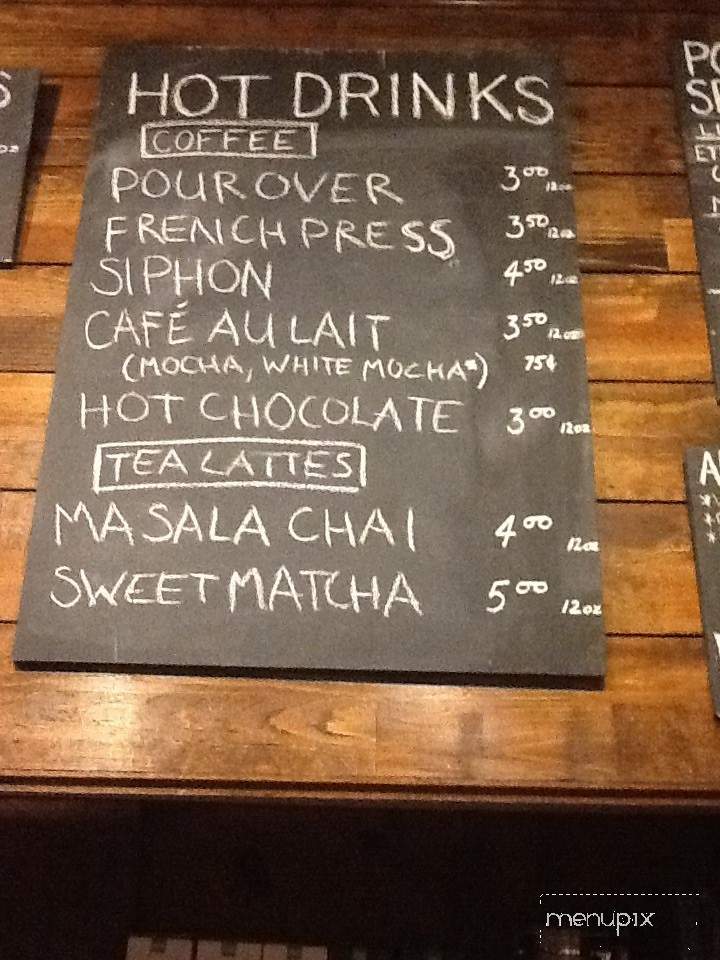 HOT DRINKS
COFFEE
POUR OVER 3.00 12oz
FRENCH PRESS 3.50 12oz
SIPHON 4.50 12oz
CAFÉ AU LAIT 3.50 12oz
(MOCHA, WHITE MOCHA*) 75¢
HOT CHOCOLATE 3.00 12oz
TEA LATTES
MASALA CHAI 4.00 12oz
SWEET MATCHA 5.00 12oz
menupix